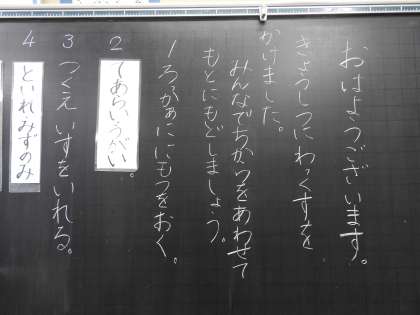 おはようございます。
きょうしつにわっくすを
かけました。
みんなでちからをあわせて
もとにもどしましょう。
1 ろっかあににもつをおく。
2 てあらいうがい。
3 つくえいすをいれる。
4 といれみずのみ